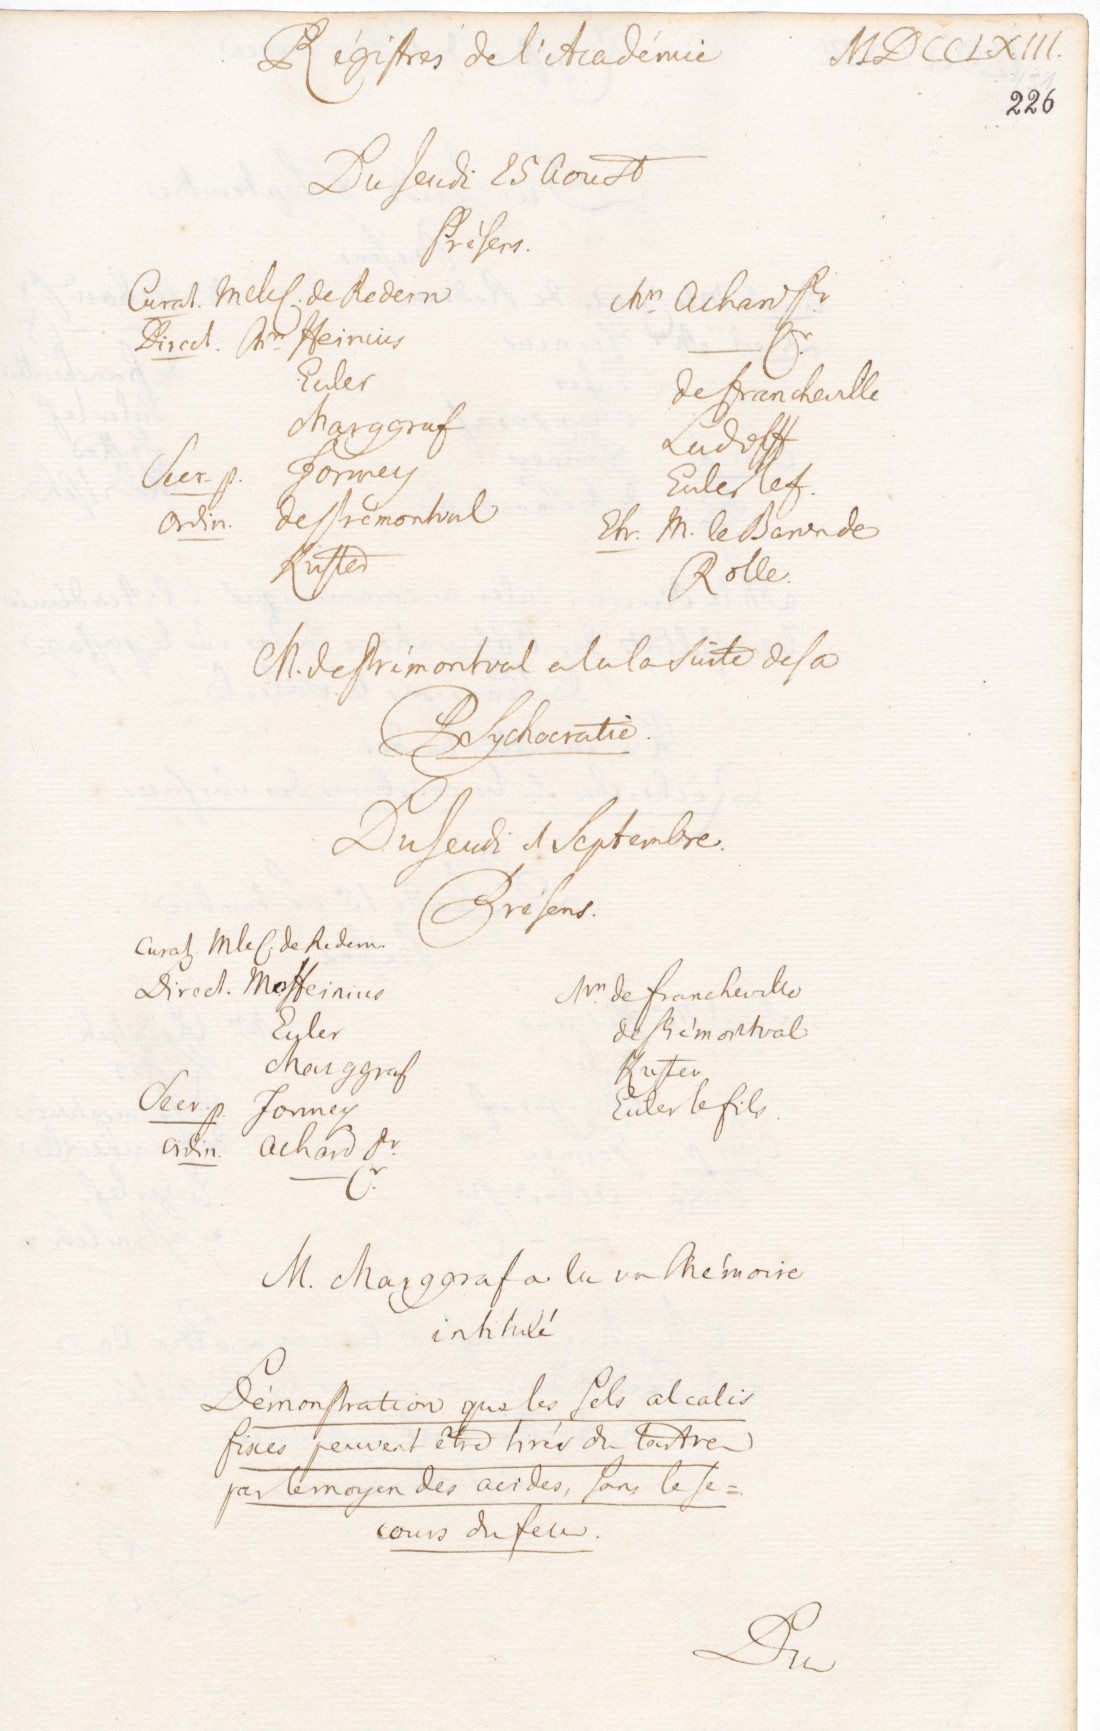 Régistres de l'Académie
MDCCLXIII.
226
Du Jeudi 25 Aoust
Présens.
Curat. M le C. de Redern
Direct. Mrs Heinius
Euler
Marggraf
Secr. p. Formey
Ordin. de Prémontval
Küster
Mrs Achard Pr
— Cr
de Francheville
Ludolff
Euler le f.
Etr. M. le Baron de
Rolle.
M. de Prémontval a lu la suite de sa
Psychocratie.
Du Jeudi 1 Septembre.
Présens.
Curat. M le C. de Redern
Direct. Mrs Heinius
Euler
Marggraf
Secr. p. Formey
Ordin. Achard Pr.
— Cr.
Mrs de Francheville
de Prémontval
Küster
Euler le fils.
M. Marggraf a lu un Mémoire
intitulé
Démonstration que les Sels alcalis
fixes peuvent être tirés du tartre
par le moyen des acides, sans le se=
cours du feu.
Du